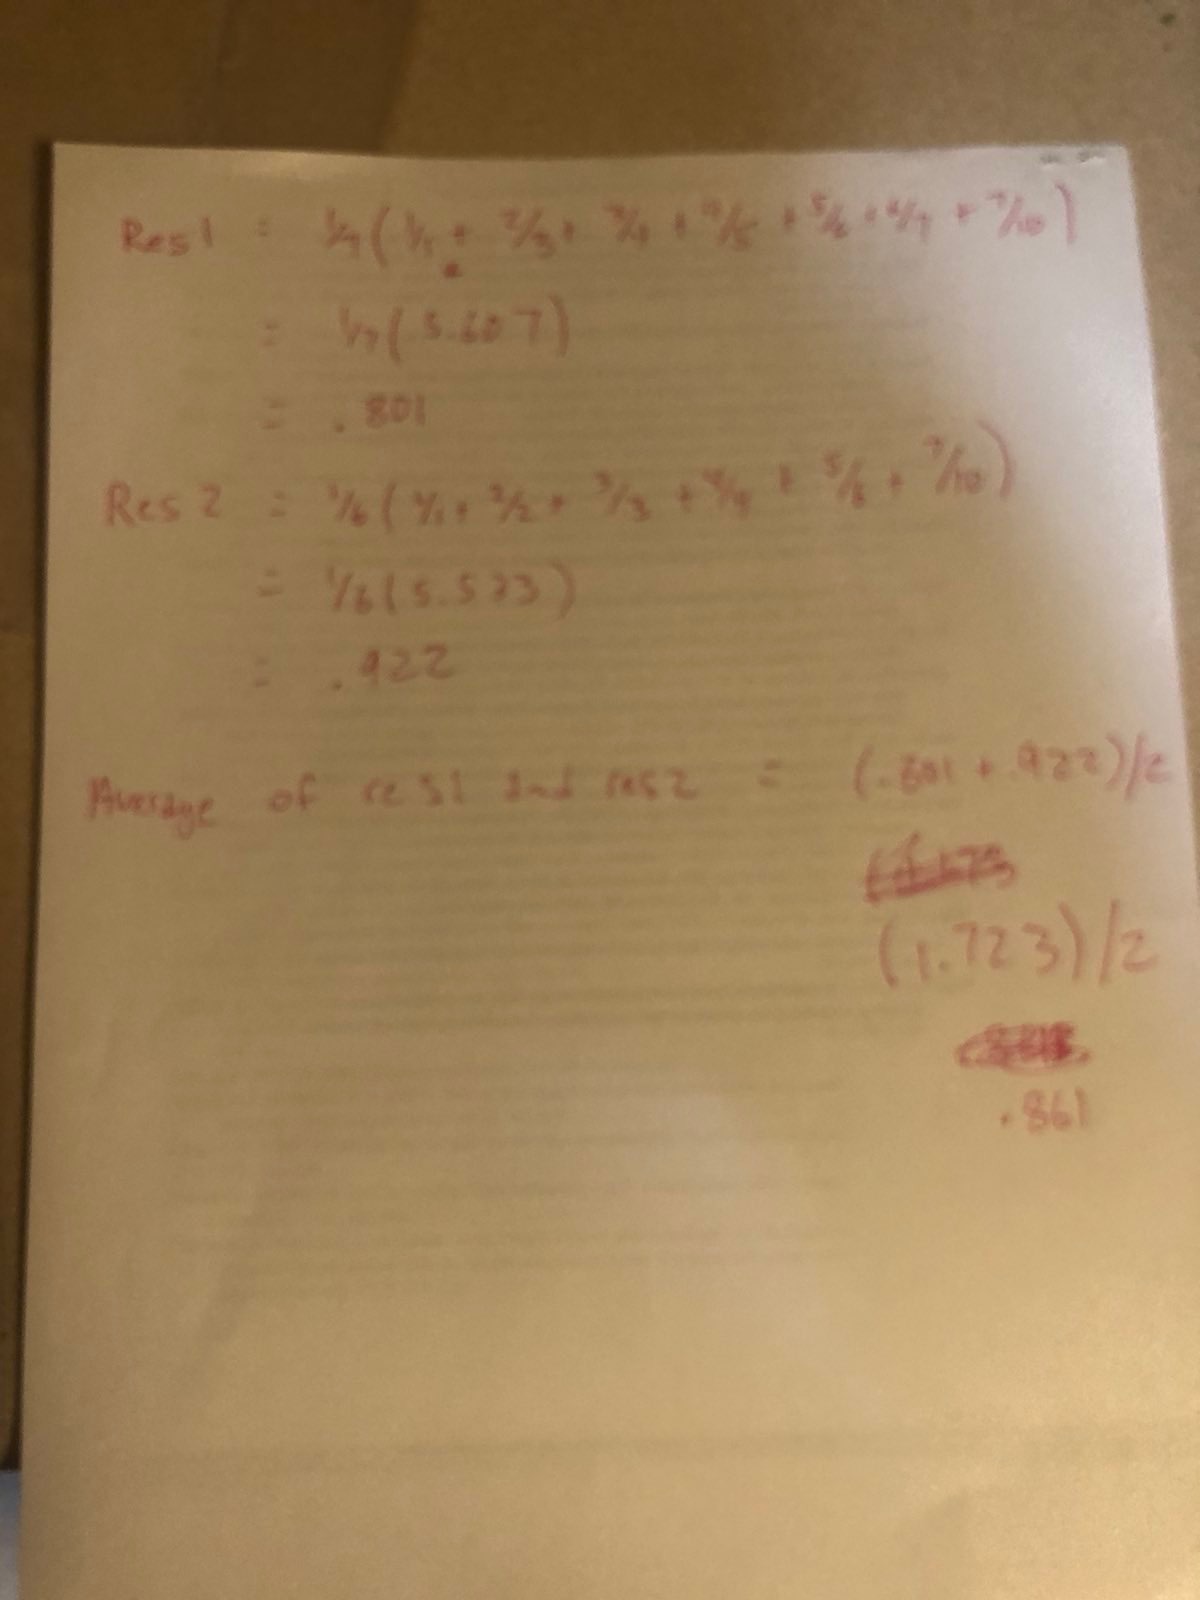 Res 1 = 1/7 ( 1/1 + 2/3 + 3/4 + 4/5 + 5/6 + 6/7 + 7/10 )
= 1/7 ( 5.607 )
= .801
Res 2 = 1/6 ( 1/1 + 2/2 + 3/3 + 4/4 + 5/6 + 7/10 )
= 1/6 ( 5.533 )
= .922
Average of res1 and res2 = (.801 + .922)/2
(1.723)/2
.861